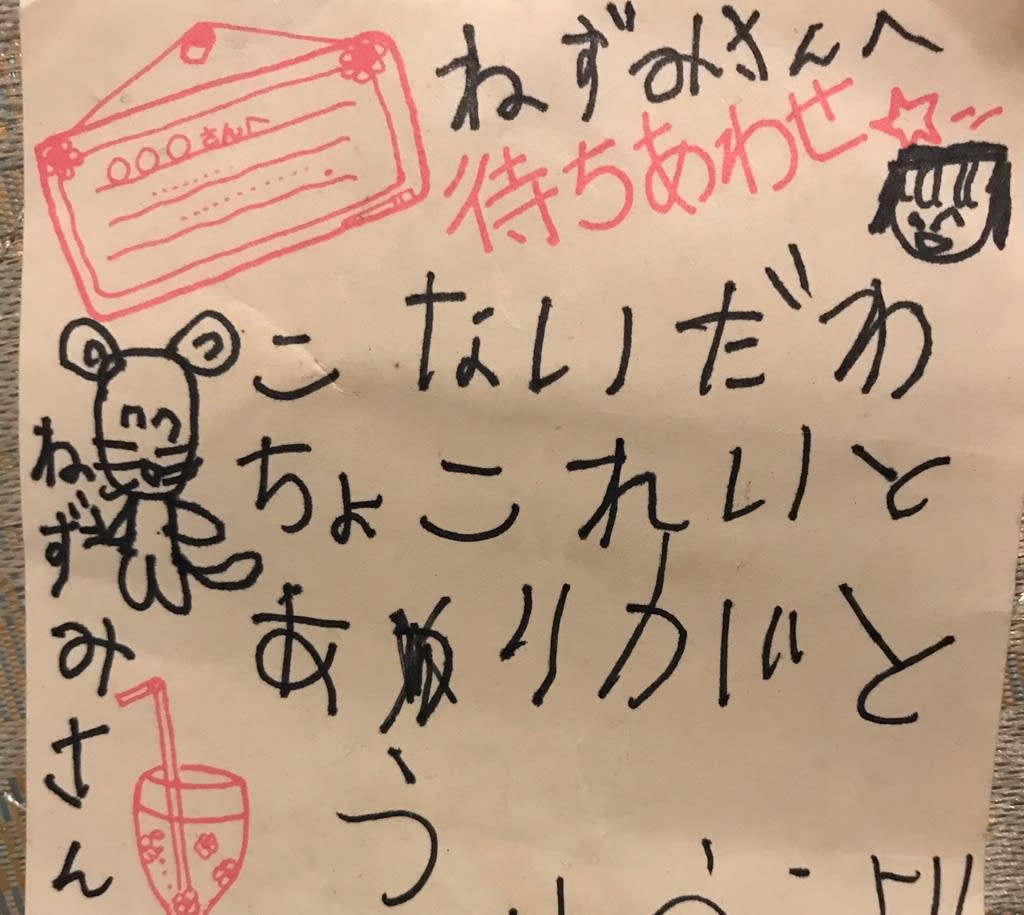 ねずみさんへ
待ちあわせ☆
○○○さんへ
こないだわ
ちょこれいと
ありがと
う
ねずみさん